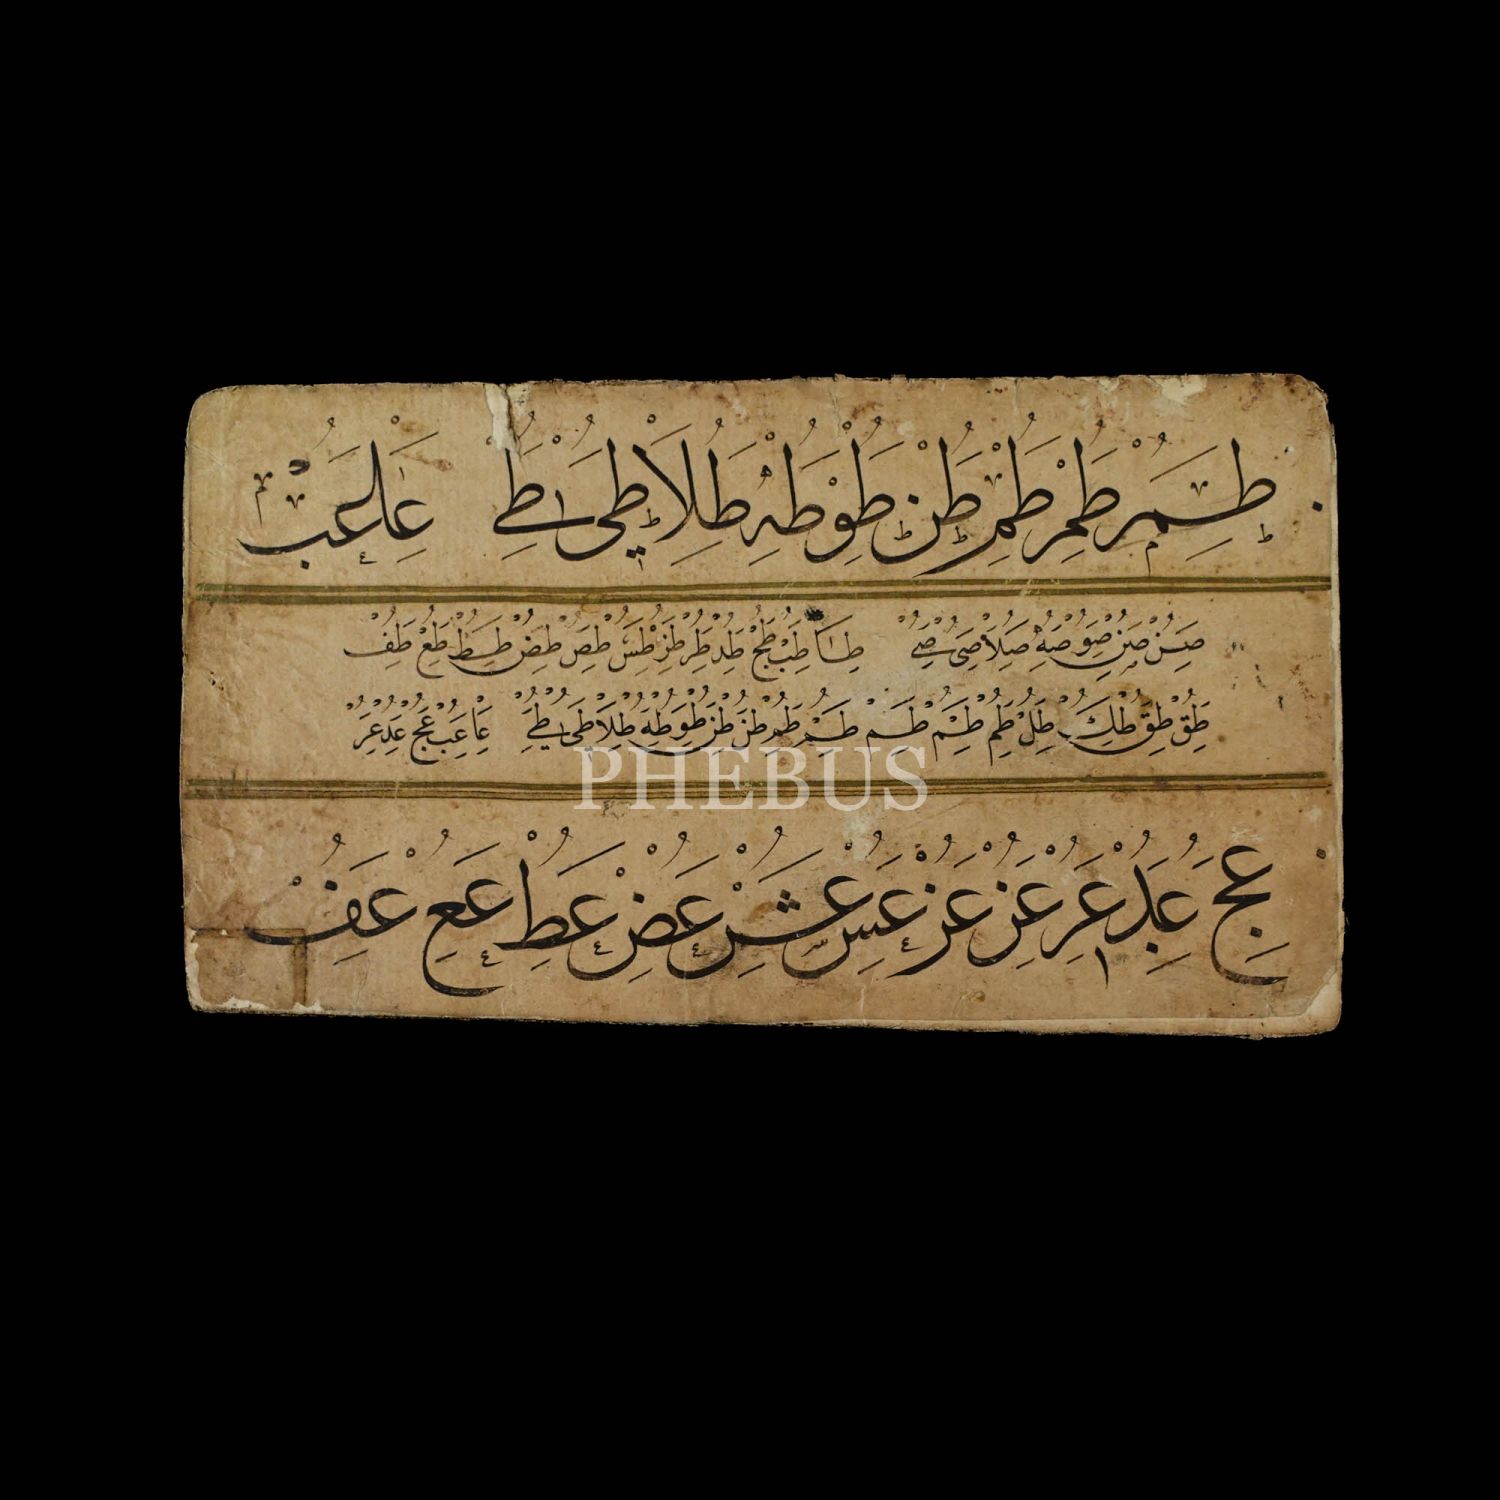 طسم طمر طمر طن طو طه طلا طى طے عا عب
صن صن صو صه صلا صى صے طا طب طج طد طر طز طس طص طض طط طع طف
طق طق طك طل طم طم طم طم طم طن طن طو طه طلا طى طے عا عب عج عد عر
PHEBUS
عج عد عر عز عز عس عش عض عط عع عف